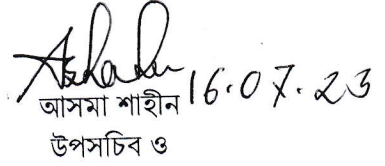 16.07.23
আসমা শাহীন
উপসচিব ও